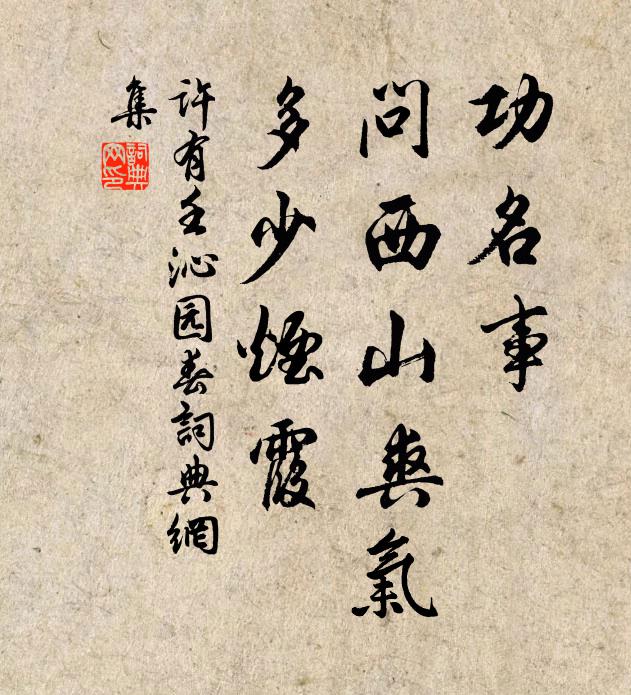 功名事
問西山爽氣
多少煙霞
許有壬沁园春詞典網
集
詞典
网印